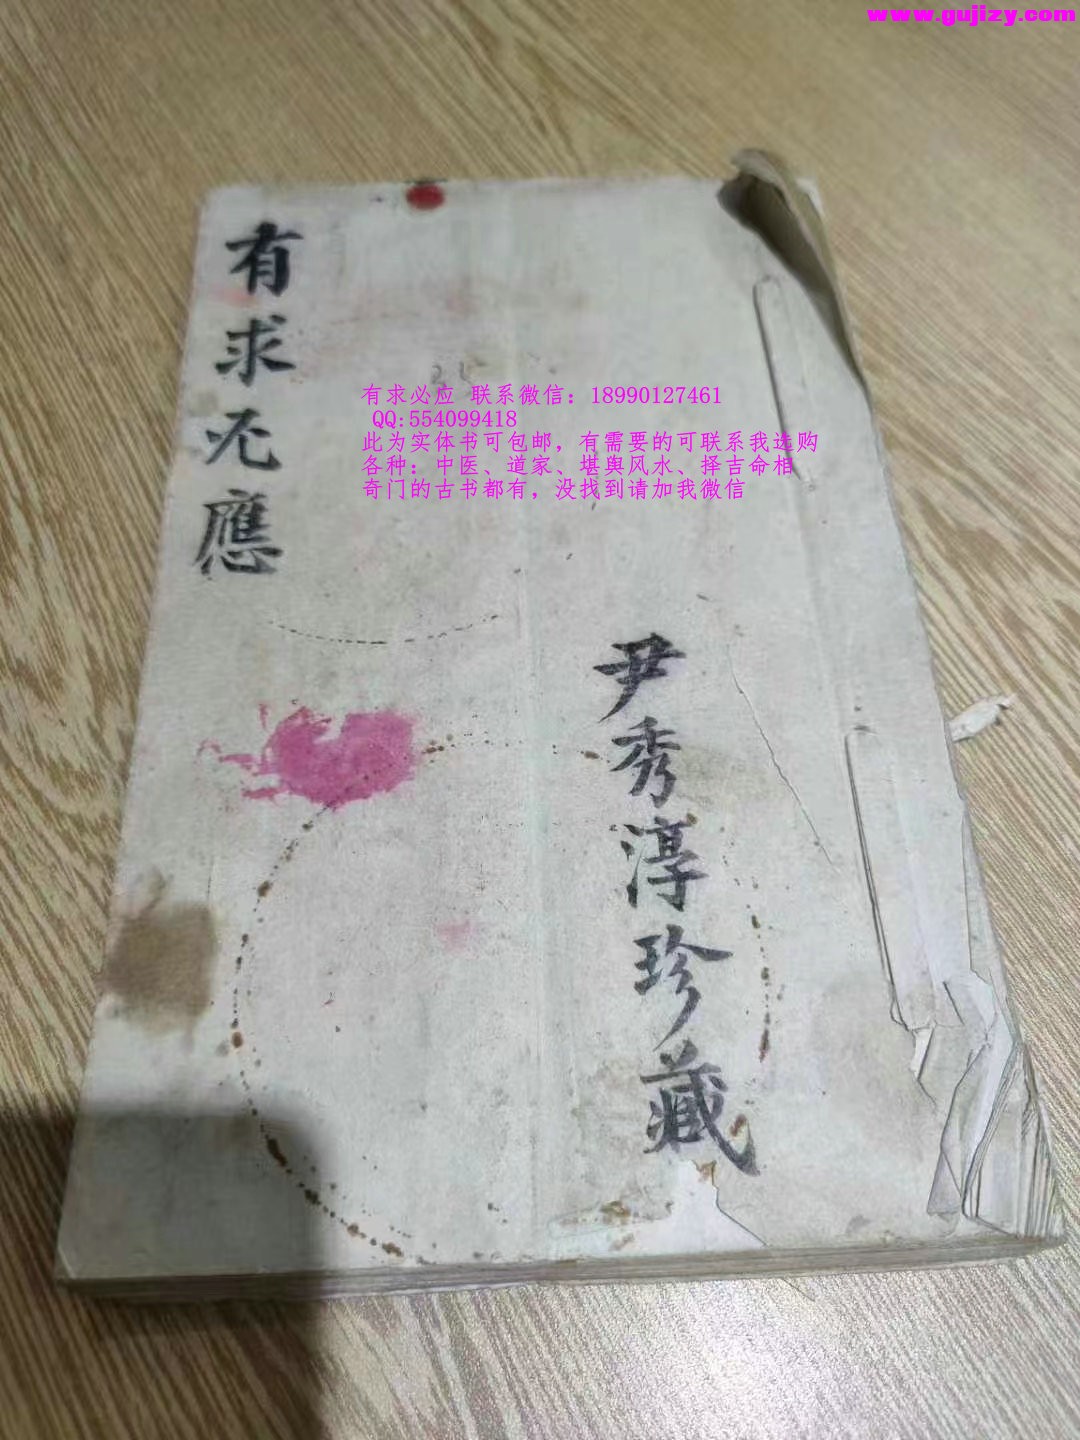 www.gujizy.com
有求无應
有求必应 联系微信：18990127461
QQ:554099418
此为实体书可包邮，有需要的可联系我选购
各种：中医、道家、堪舆风水、择吉命相
奇门的古书都有，没找到请加我微信
尹秀淳珍藏